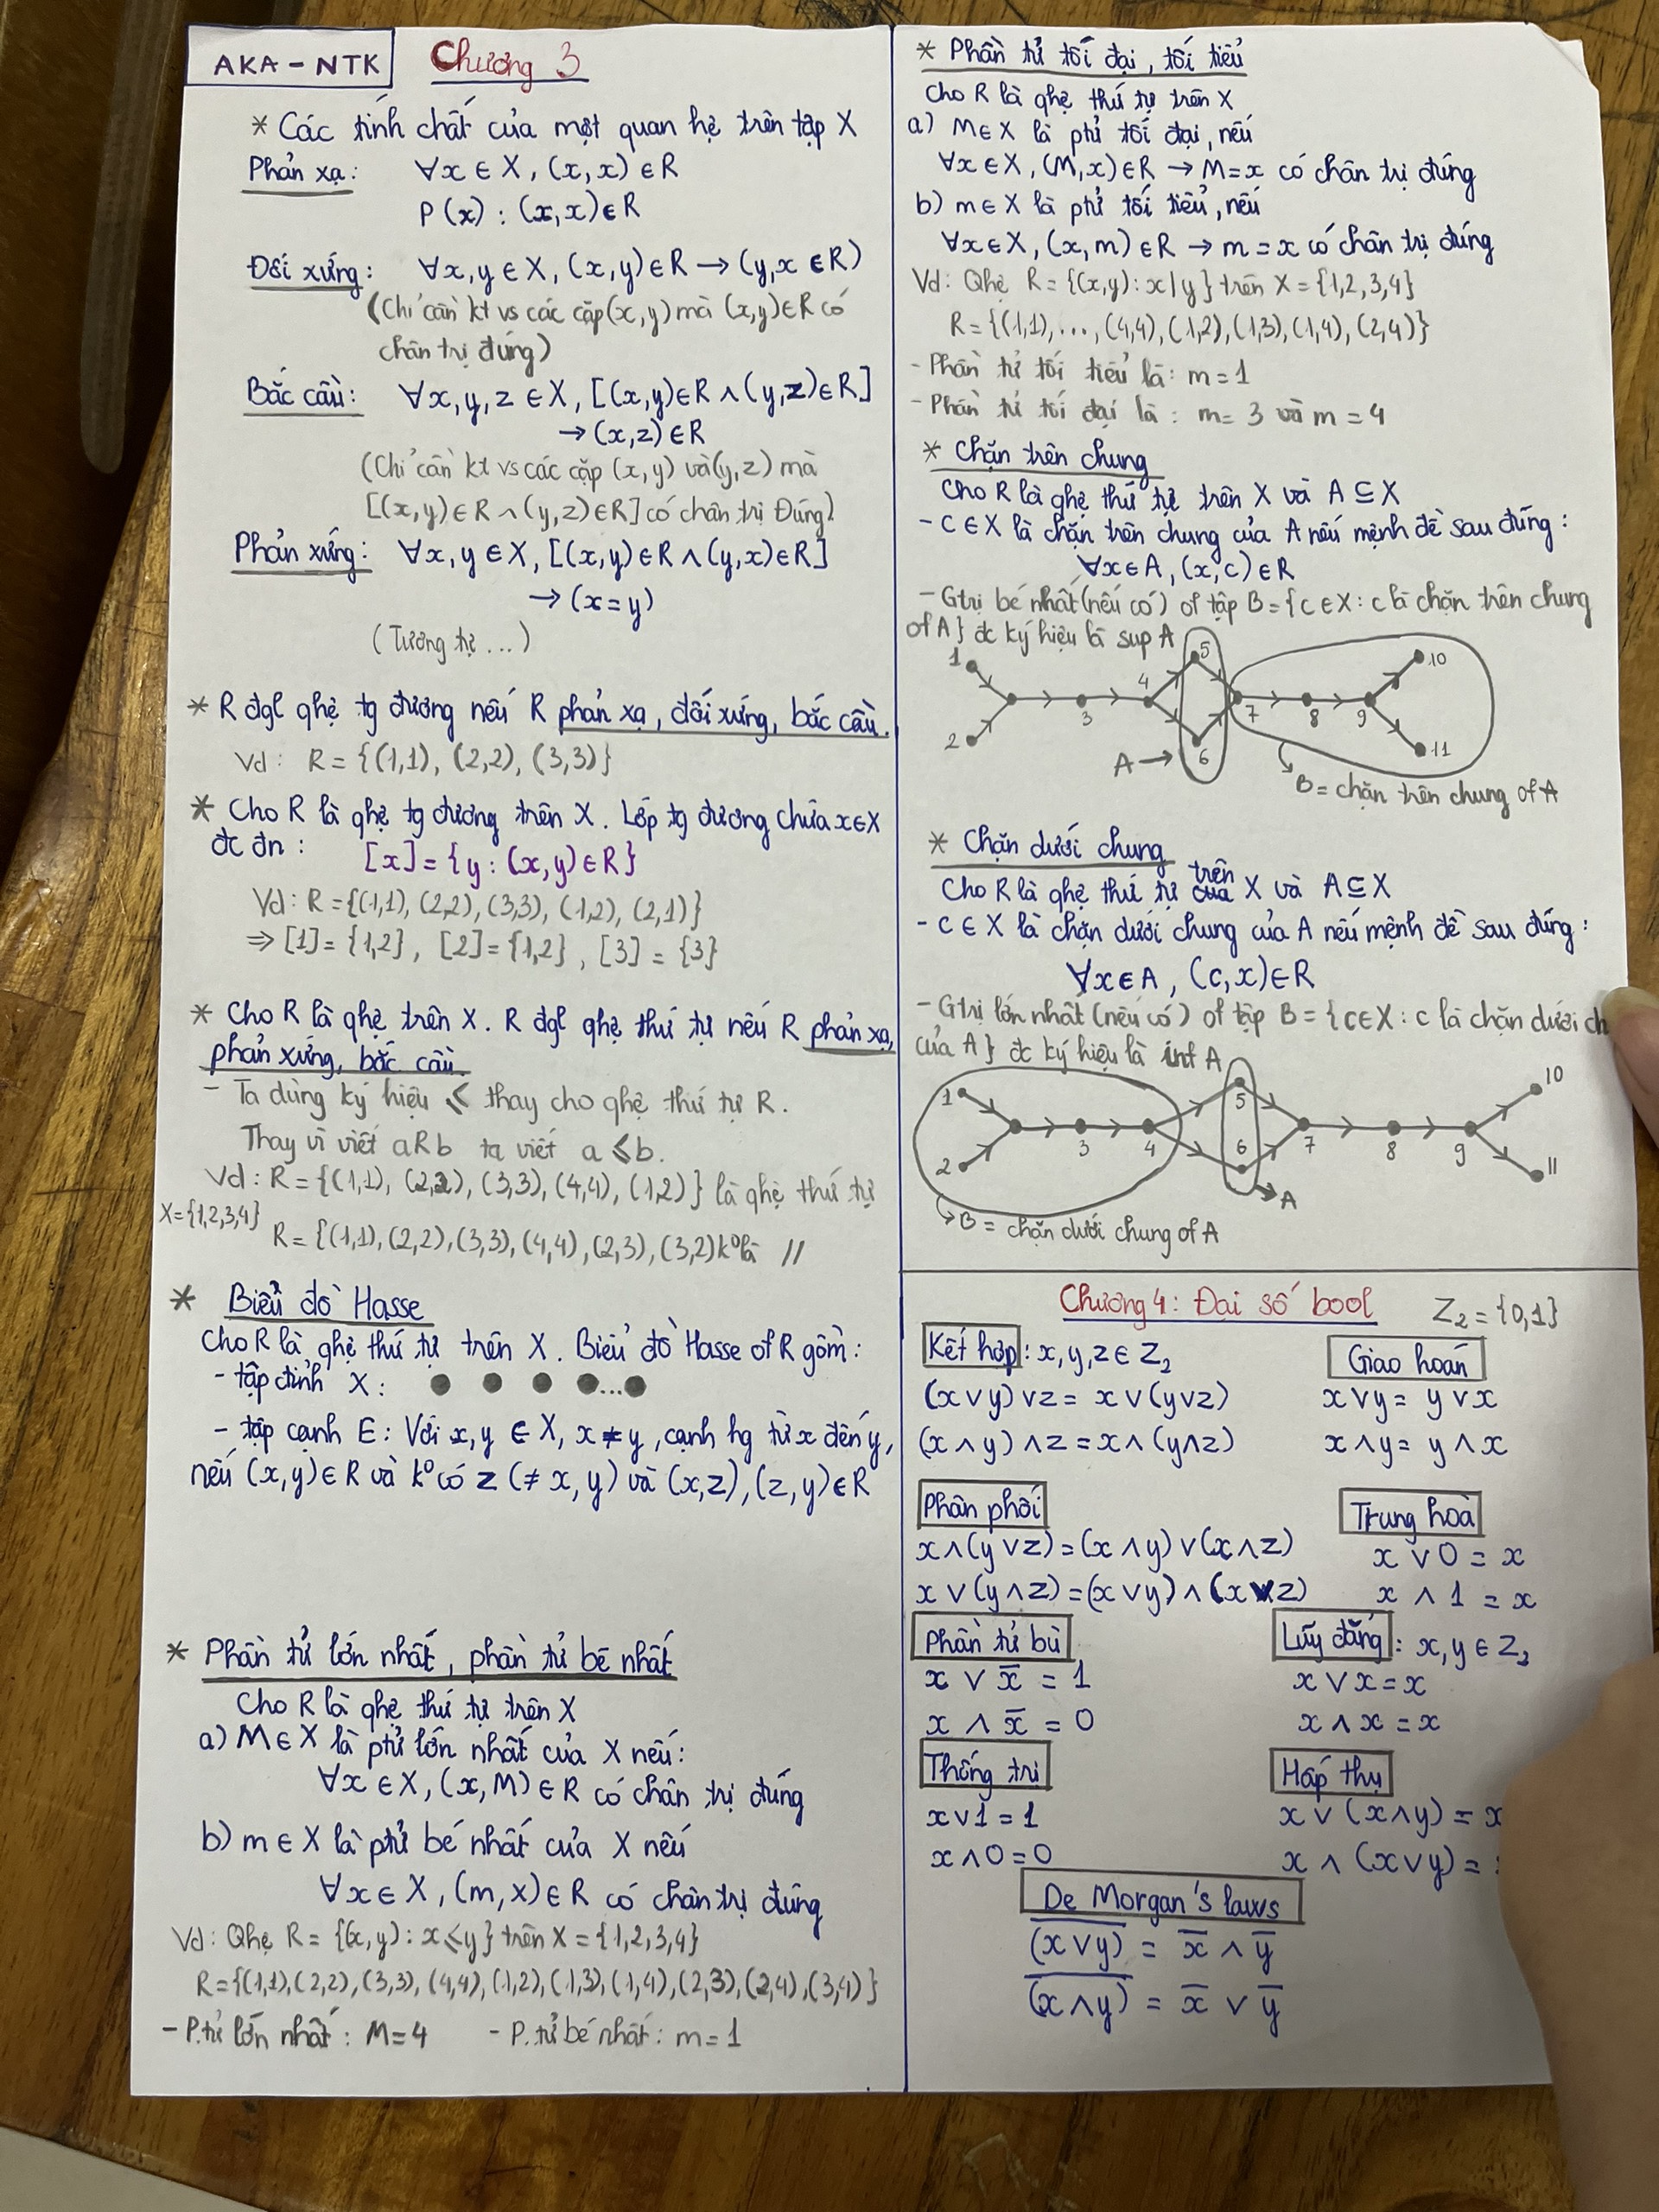 AKA - NTK
Chương 3
* Các tính chất của một quan hệ trên tập X
Phản xạ: ∀x ∈ X, (x, x) ∈ R
P(x) : (x, x) ∈ R
Đối xứng: ∀x, y ∈ X, (x, y) ∈ R → (y, x ∈ R)
(Chỉ cần kt vs các cặp (x, y) mà (x, y) ∈ R có
chân trị đúng)
Bắc cầu: ∀x, y, z ∈ X, [(x, y) ∈ R ∧ (y, z) ∈ R]
→ (x, z) ∈ R
(Chỉ cần kt vs các cặp (x, y) và (y, z) mà
[(x, y) ∈ R ∧ (y, z) ∈ R] có chân trị Đúng)
Phản xứng: ∀x, y ∈ X, [(x, y) ∈ R ∧ (y, x) ∈ R]
→ (x = y)
(Tương tự ...)
* R đgl qhệ tg đương nếu R phản xạ, đối xứng, bắc cầu.
Vd: R = {(1,1), (2,2), (3,3)}
* Cho R là qhệ tg đương trên X. Lớp tg đương chứa x ∈ X
đc đn : [x] = {y : (x, y) ∈ R}
Vd: R = {(1,1), (2,2), (3,3), (1,2), (2,1)}
⇒ [1] = {1,2}, [2] = {1,2}, [3] = {3}
* Cho R là qhệ trên X. R đgl qhệ thứ tự nếu R phản xạ,
phản xứng, bắc cầu.
- Ta dùng ký hiệu ≼ thay cho qhệ thứ tự R.
Thay vì viết aRb ta viết a ≼ b.
Vd: R = {(1,1), (2,2), (3,3), (4,4), (1,2)} là qhệ thứ tự
X = {1,2,3,4}
R = {(1,1), (2,2), (3,3), (4,4), (2,3), (3,2) k⁰ là //
* Biểu đồ Hasse
Cho R là qhệ thứ tự trên X. Biểu đồ Hasse of R gồm:
- tập đỉnh X : ...
- tập cạnh E: Với x, y ∈ X, x ≠ y, cạnh hg từ x đến y,
nếu (x, y) ∈ R và k⁰ có z (≠ x, y) và (x, z), (z, y) ∈ R
* Phần tử lớn nhất, phần tử bé nhất
Cho R là qhệ thứ tự trên X
a) M ∈ X là ptử lớn nhất của X nếu:
∀x ∈ X, (x, M) ∈ R có chân trị đúng
b) m ∈ X là ptử bé nhất của X nếu
∀x ∈ X, (m, x) ∈ R có chân trị đúng
Vd: Qhệ R = {(x, y) : x ≤ y} trên X = {1,2,3,4}
R = {(1,1), (2,2), (3,3), (4,4), (1,2), (1,3), (1,4), (2,3), (2,4), (3,4)}
- P.tử lớn nhất : M = 4 - P.tử bé nhất : m = 1
* Phần tử tối đại, tối tiểu
Cho R là qhệ thứ tự trên X
a) M ∈ X là ptử tối đại, nếu
∀x ∈ X, (M, x) ∈ R → M = x có chân trị đúng
b) m ∈ X là ptử tối tiểu, nếu
∀x ∈ X, (x, m) ∈ R → m = x có chân trị đúng
Vd: Qhệ R = {(x, y) : x | y} trên X = {1,2,3,4}
R = {(1,1), ..., (4,4), (1,2), (1,3), (1,4), (2,4)}
- Phần tử tối tiểu là: m = 1
- Phần tử tối đại là : m = 3 và m = 4
* Chặn trên chung
Cho R là qhệ thứ tự trên X và A ⊆ X
- c ∈ X là chặn trên chung của A nếu mệnh đề sau đúng:
∀x ∈ A, (x, c) ∈ R
- Gtrị bé nhất (nếu có) of tập B = {c ∈ X : c là chặn trên chung
of A} đc ký hiệu là sup A
1 2 3 4 5 6 7 8 9 10 11
A →
B = chặn trên chung of A
* Chặn dưới chung
Cho R là qhệ thứ tự trên X và A ⊆ X
- c ∈ X là chặn dưới chung của A nếu mệnh đề sau đúng:
∀x ∈ A, (c, x) ∈ R
- Gtrị lớn nhất (nếu có) of tập B = {c ∈ X : c là chặn dưới ch
của A} đc ký hiệu là inf A
1 2 3 4 5 6 7 8 9 10 11
A
B = chặn dưới chung of A
Chương 4: Đại số bool Z₂ = {0,1}
Kết hợp : x, y, z ∈ Z₂
(x ∨ y) ∨ z = x ∨ (y ∨ z)
(x ∧ y) ∧ z = x ∧ (y ∧ z)
Giao hoán
x ∨ y = y ∨ x
x ∧ y = y ∧ x
Phân phối
x ∧ (y ∨ z) = (x ∧ y) ∨ (x ∧ z)
x ∨ (y ∧ z) = (x ∨ y) ∧ (x ∨ z)
Trung hoà
x ∨ 0 = x
x ∧ 1 = x
Phần tử bù
x ∨ x̅ = 1
x ∧ x̅ = 0
Lũy đẳng : x, y ∈ Z₂
x ∨ x = x
x ∧ x = x
Thống trị
x ∨ 1 = 1
x ∧ 0 = 0
Hấp thụ
x ∨ (x ∧ y) = x
x ∧ (x ∨ y) =
De Morgan's laws
\overline{(x ∨ y)} = x̅ ∧ y̅
\overline{(x ∧ y)} = x̅ ∨ y̅